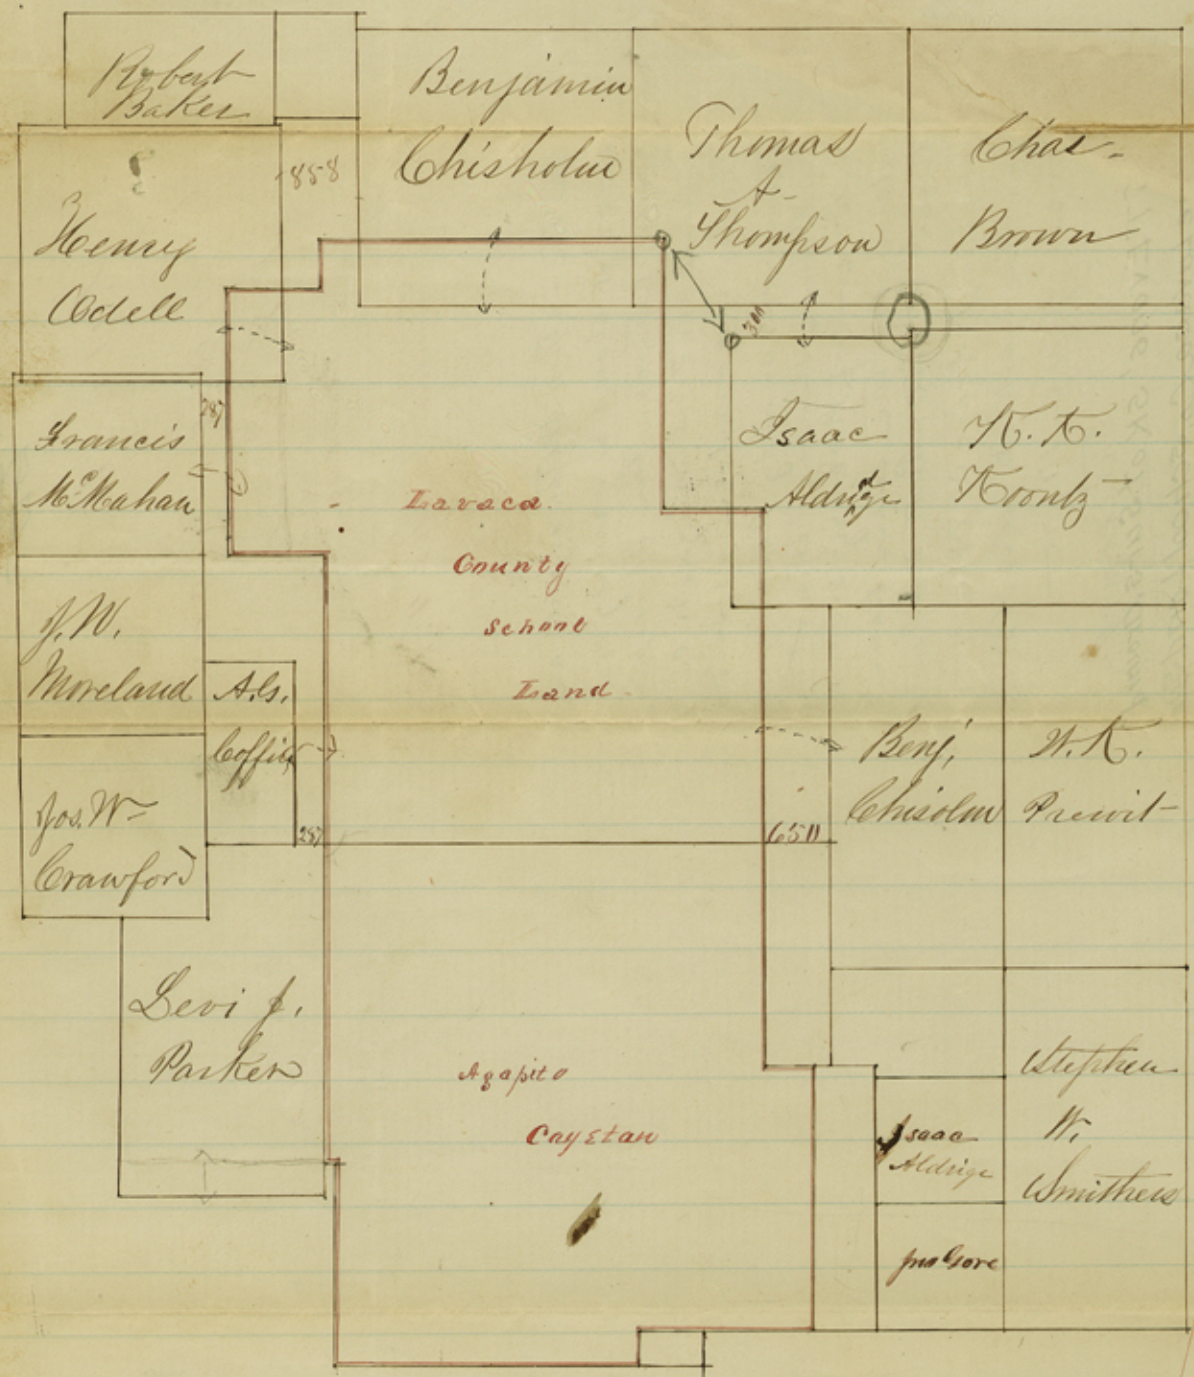 Robert
Baker
Benjamin
Chisholm
Thomas
A
Thompson
Chas.
Brown
858
Henry
Odell
301
287
Francis
McMahan
Isaac
Aldridge
K. K.
Koontz
Lavaca
County
School
Land
J. W.
Moreland
A. G.
Coffin
Benj.
Chisolm
W. K.
Prewit
Jos. W
Crawford
287
650
Levi J.
Parker
Agapito
Caystan
Stephen
W.
Smithers
Isaac
Aldrige
Jno Gore